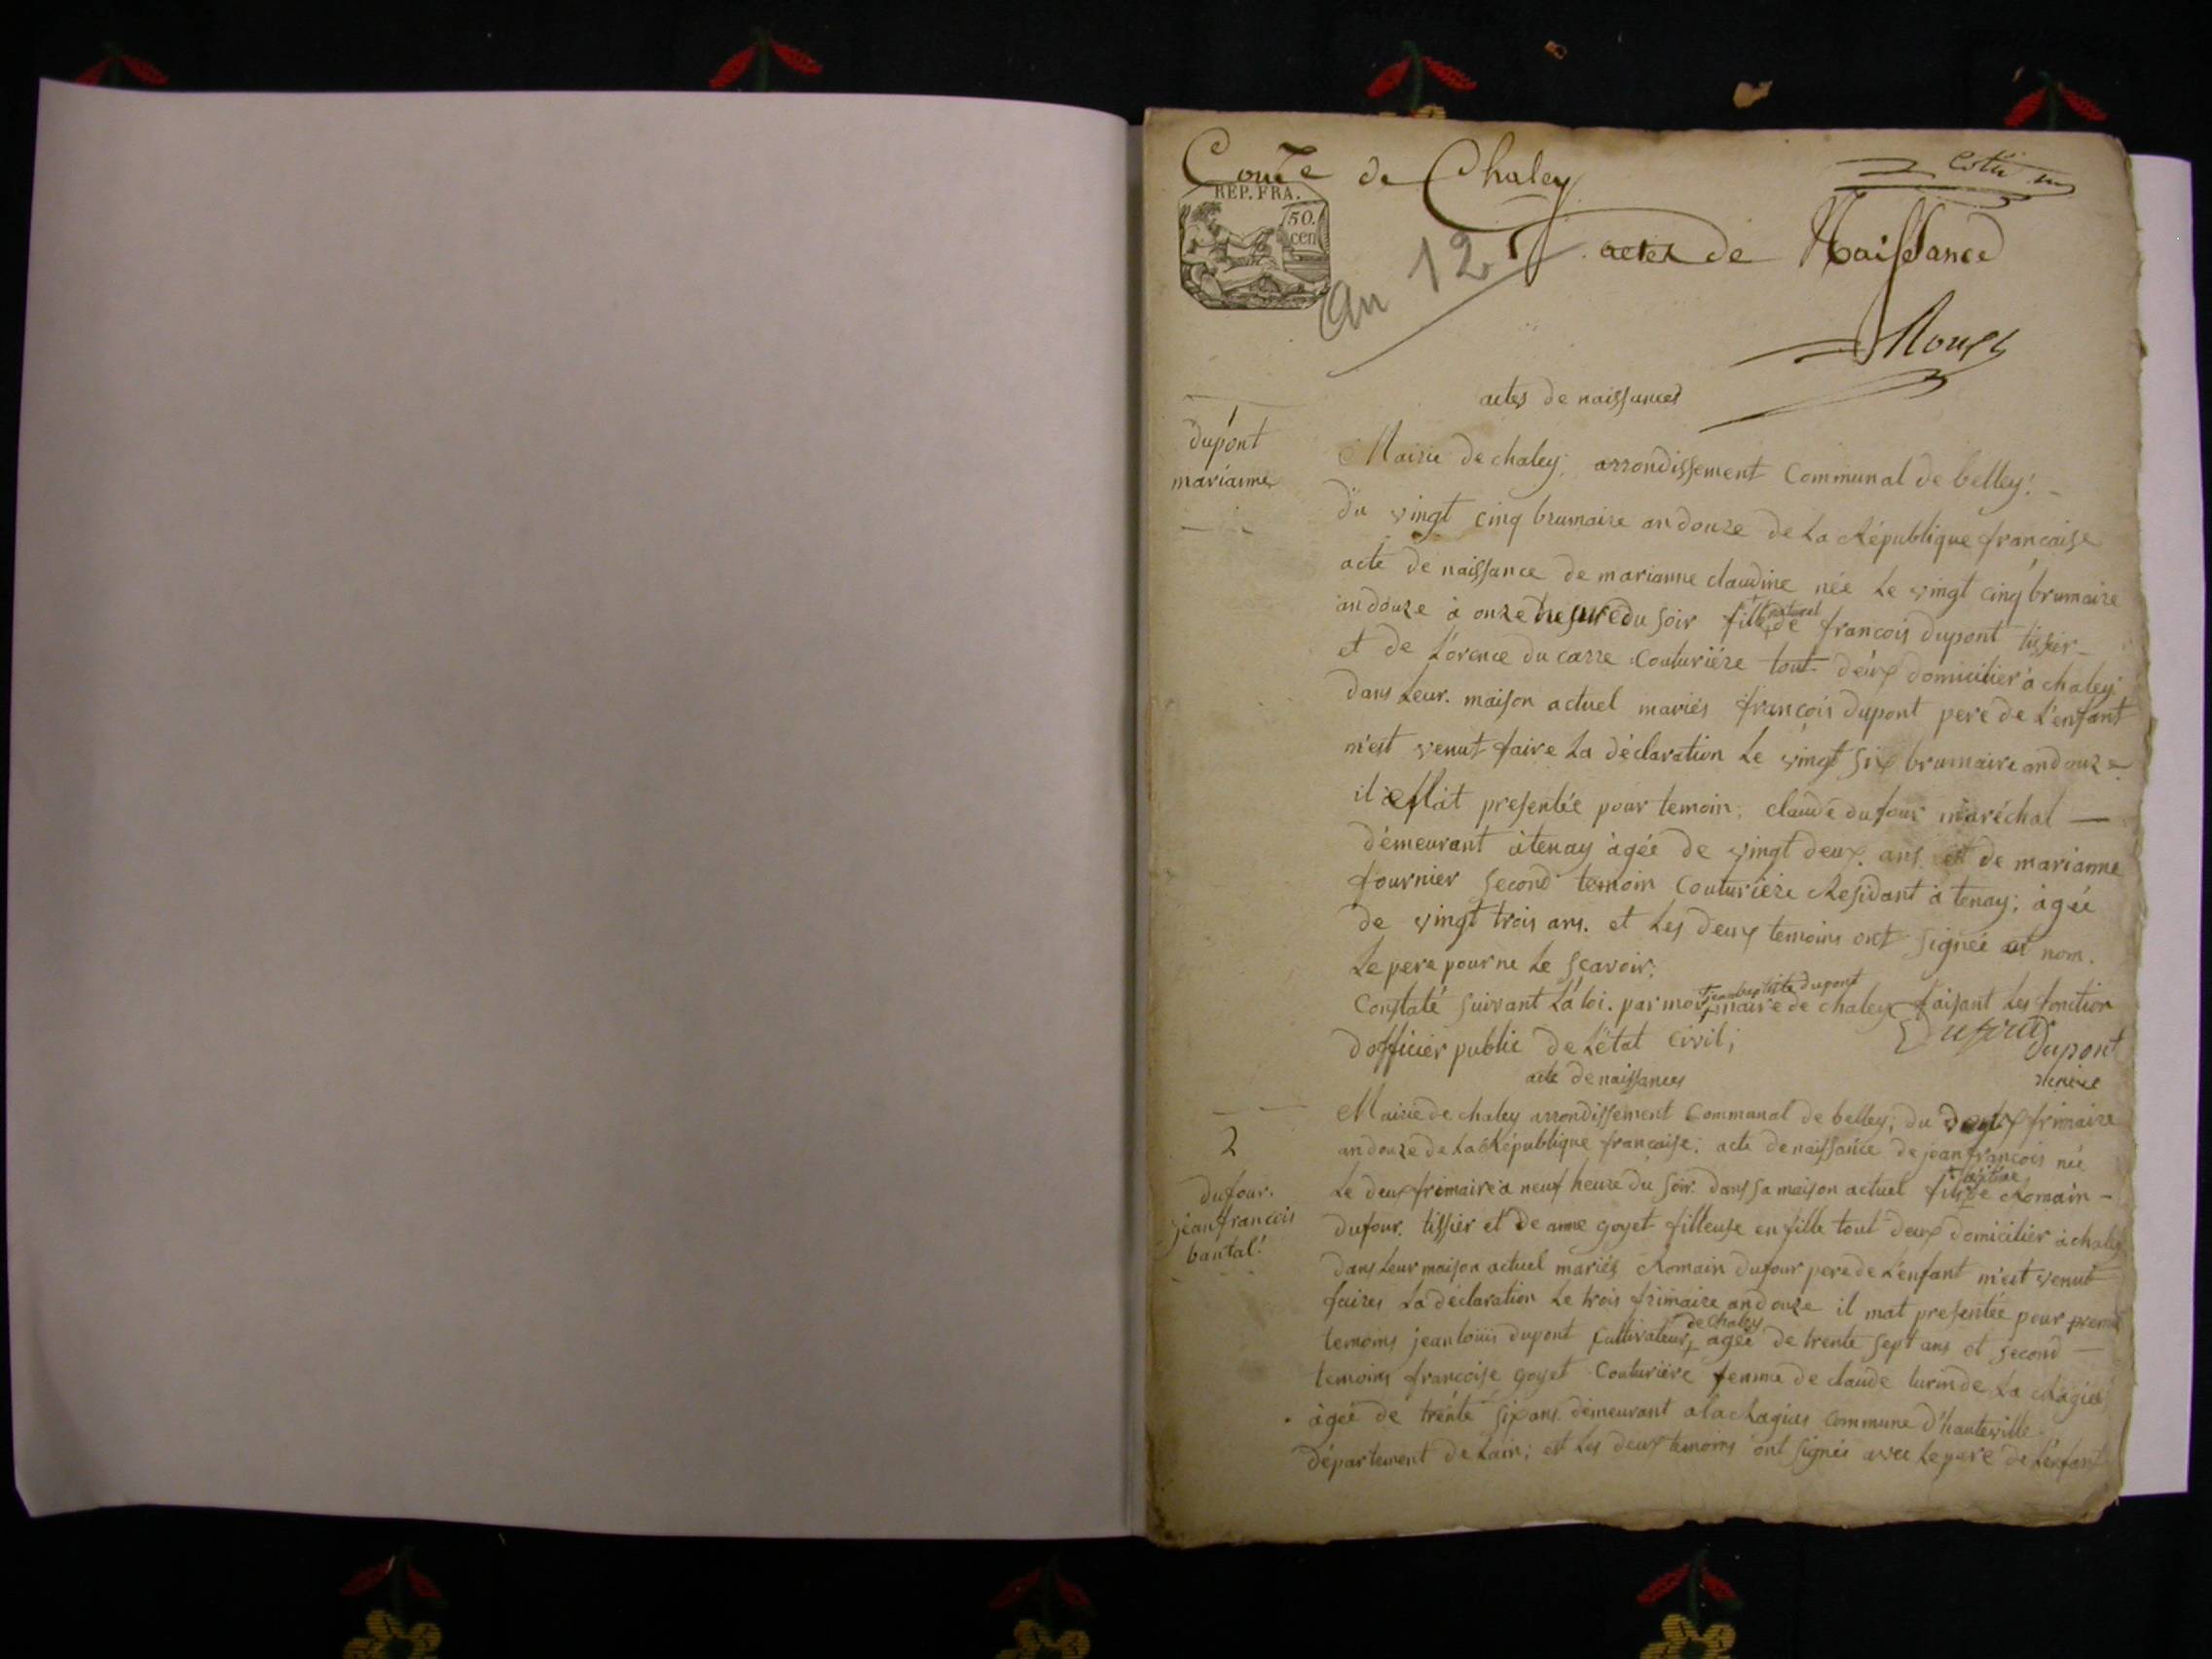 Comᵉ de Chaley
REP. FRA.
50.
cen
an 12
actes de Naissance
actes de naissances
1
dupont
marianne
Mairie de chaley, arrondissement Communal de belley.
du vingt cinq brumaire an douze de La République francaise
acte de naissance de marianne claudine née Le vingt cinq brumaire
an douze à onze heure du soir fille naturel de francois dupont tissier
et de Lorence ducarre Couturiére tout deux domicilier à chaley
dans Leur. maison actuel mariés françois dupont pere de L'enfant
m'est venut faire La déclaration Le vingt six brumaire an douze
il presentée pour temoin, claude dufour maréchal
démeurant à tenay àgée de vingt deux. ans. et de marianne
fournier second temoin Couturiére Residant à tenay; àgée
de vingt trois ans. et Les deux temoins ont signée et nom.
Le pere pour ne Le scavoir;
Constaté suivant La loi. par moi jean baptiste dupont maire de chaley faisant Les fonction
dofficier public de L'état civil;
Dufour
dupont
acte de naissances
2
dufour.
jean francois
bantal.
Mairie de chaley arrondissement Communal de belley, du deux frimaire
an douze de La République francaise; acte de naissance de jean francois née
Le deux frimaire a neuf heure du soir. dans sa maison actuel fils légitime de Romain
dufour. tissier et de anne goyet filleuse en fille tout deux domicilier à chaley
dans Leur maison actuel mariés Romain dufour pere de L'enfant m'est venut
faires La déclaration Le trois frimaire an douze il mat presentée pour premié
temoins jean louis dupont Cultivateur de chaley agée de trente sept ans et second
temoins francoise goyet Couturiére femme de claude turin de La
àgée de trente six ans. demeurant a la commune d'hauteville
département de Lain; est Les deux temoins ont signée avec Le pere de L'enfant